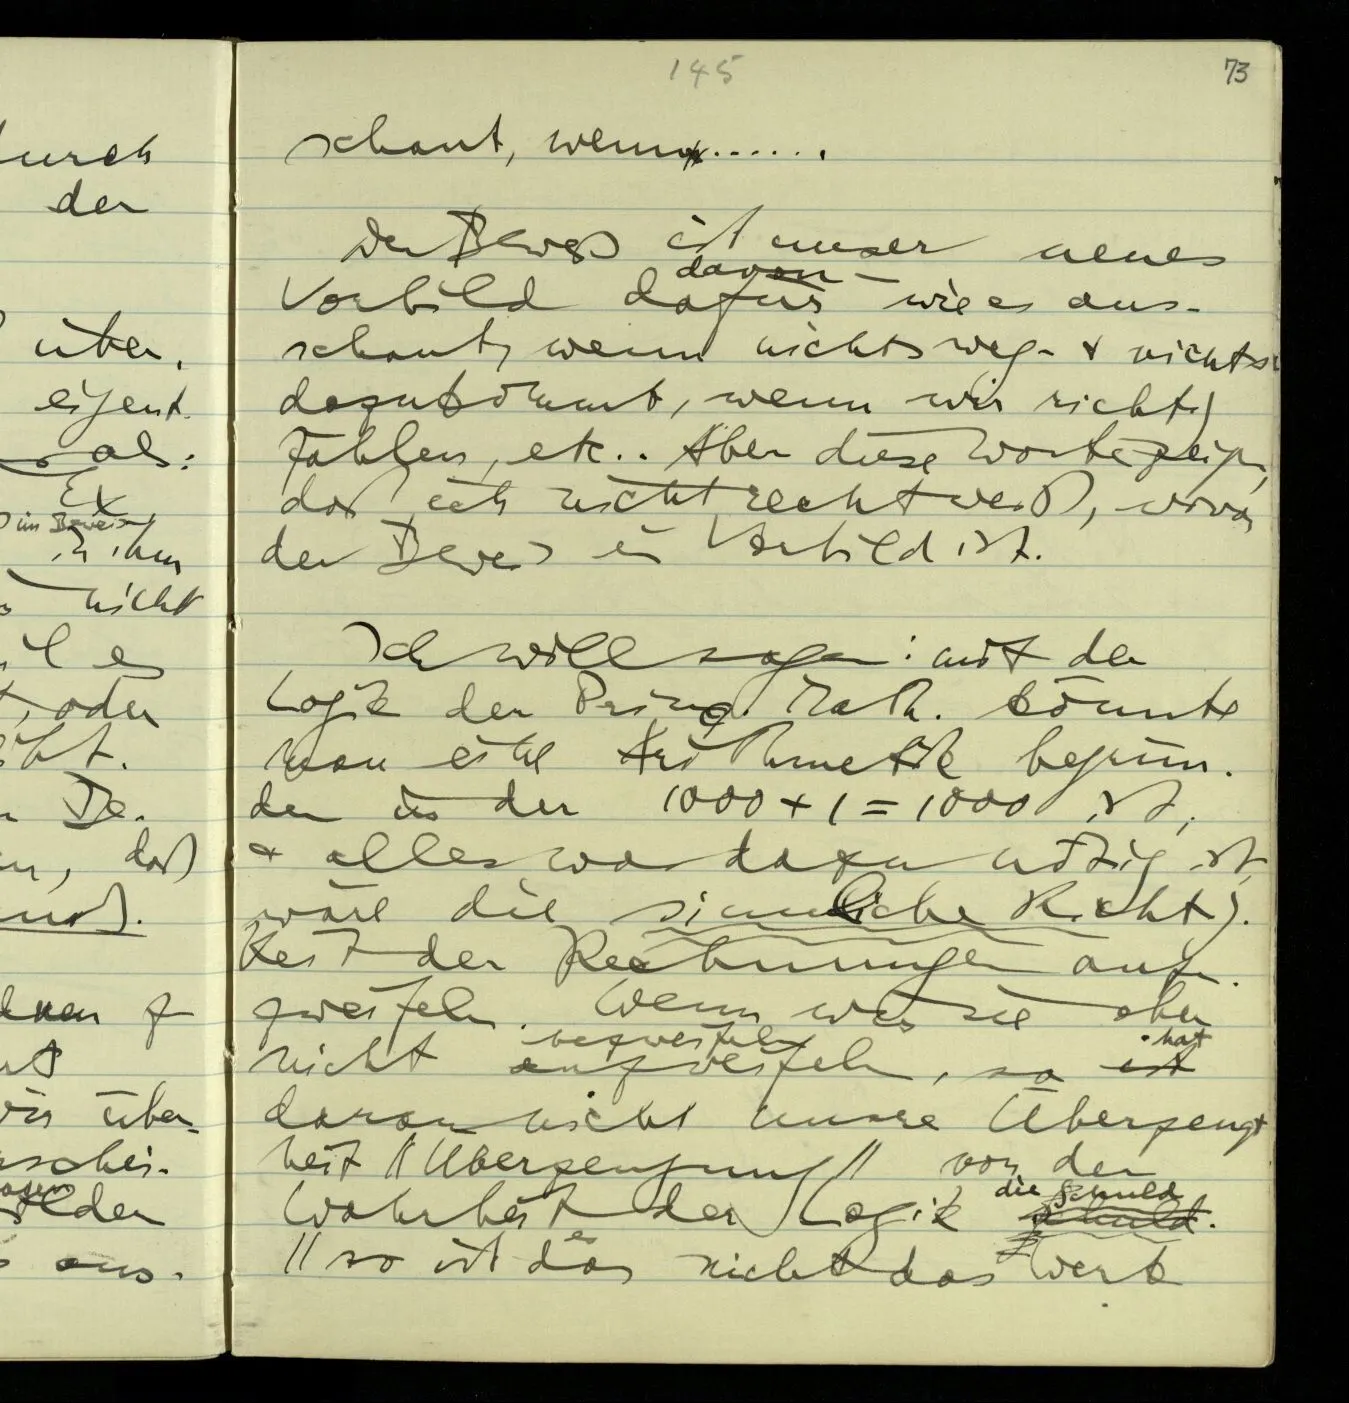 urch
der
über,
eigent.
als:
im Beweis
in ihm
nicht
il es
t, oder
eht.
Be.
en, daß
muß).
dnen
vir über-
rschei.
ilden
s aus.
145
73
schaut, wenn ......
Der Beweis ist unser neues
davon
Vorbild dafür wie es aus-
schaut, wenn nichts weg- & nichts
dazukommt, wenn wir richtig
zählen, etc.. Aber diese Worte zeigen,
daß ich nicht recht weiß, wovon
der Beweis ein Vorbild ist.
Ich will sagen: mit der
Logik der Princ. Math. könnte
man eine Arithmetik begrün.
den in der 1000 + 1 = 1000 ist;
& alles was dazu nötig ist,
wäre die sinnliche Richtig.
keit der Rechnungen anzu.
zweifeln. Wenn wir sie aber
bezweifeln hat
nicht anzweifeln, so ist
daran nicht unsre Überzeugt
heit // Überzeugung // von der
die Schuld
Wahrheit der Logik schuld.
es
// so ist das nicht das Werk